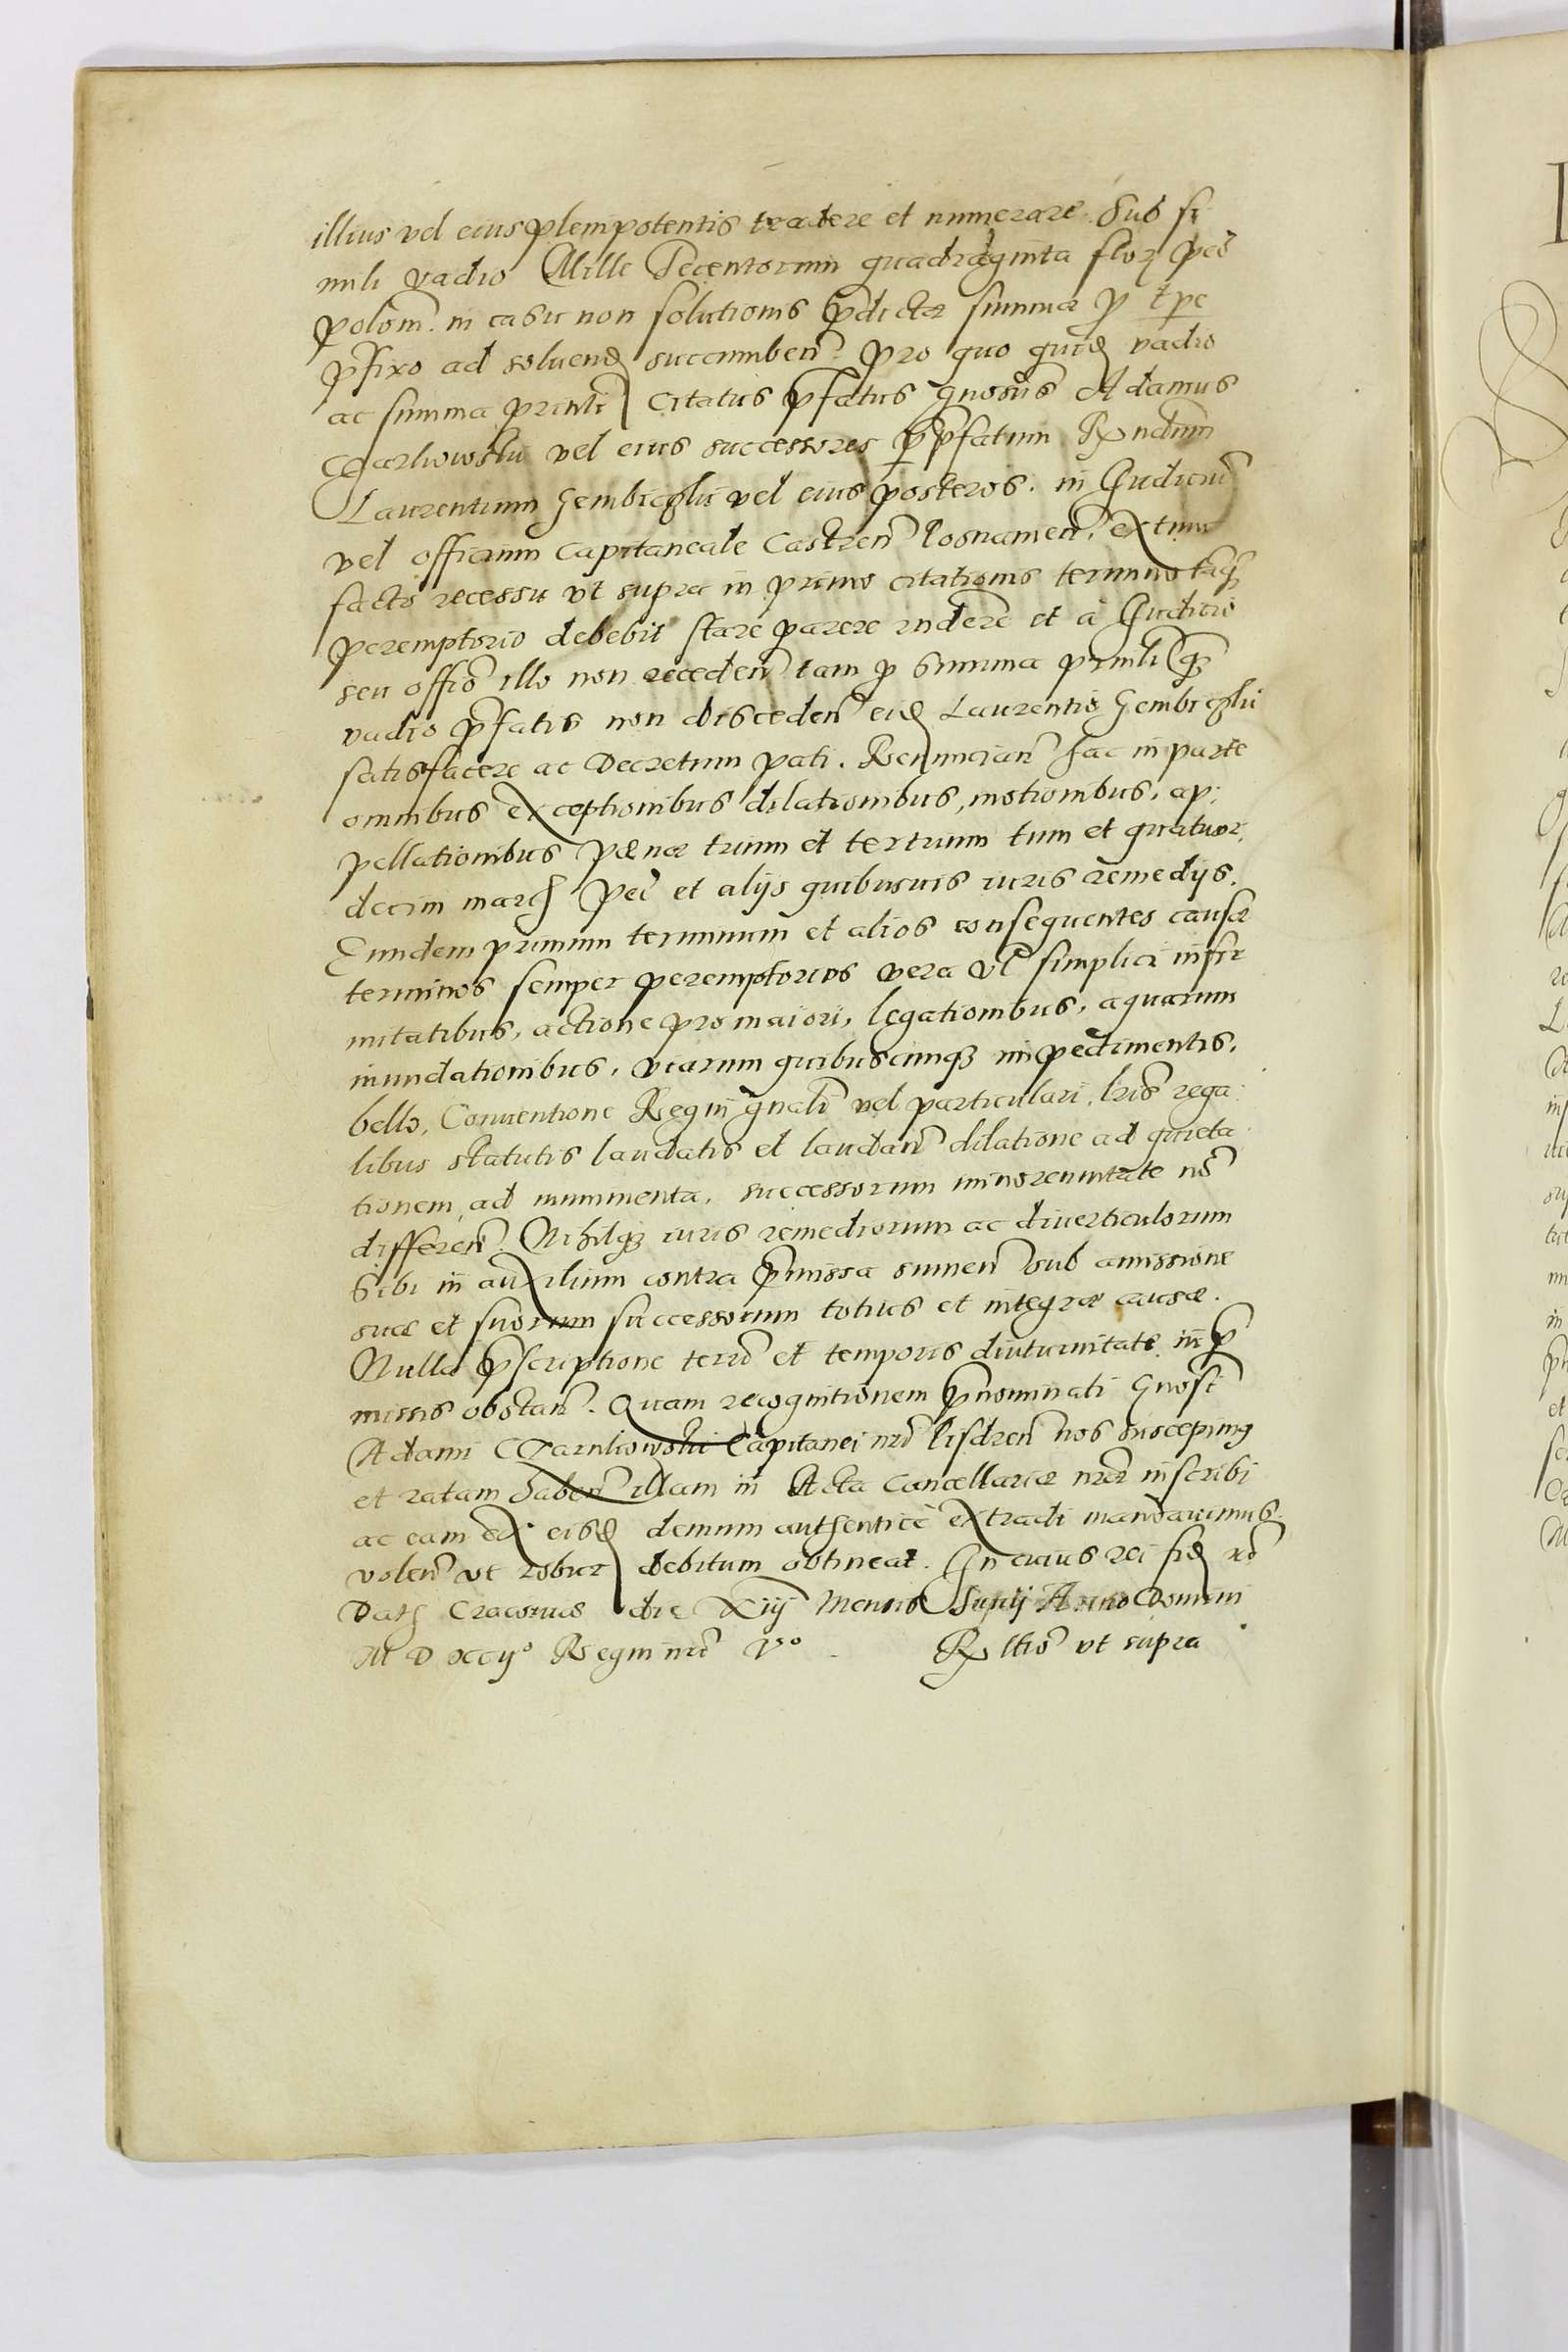 illius vel eius plenipotentis tradere et numerare. Sub si
mili vadio Mille Ducentorum quadraginta flor pec
polon. in casu non solutionis pdictæ summæ p tpe
pfixo ad soluend succumben. Pro quo quid vadio
ac summa prinli citatus pfatus gnosus Adamus
Czarnkowski vel eius successores p pfatum Rndum
Laurentium Gembiczki vel eius posteros. in Iudiciu
vel officium Capitaneale Castren Posnanien, ex tunc
facto recessu vt supra in primo citationis termino taq
peremptorio debebit stare parere rndere et a Iudicio
seu offio illo non receden tam p summa prinli q
vadio pfatis non disceden eid Laurentio Gembiczki
satisfacere ac Decretum pati. Renuncian hac in parte
omnibus exceptionibus dilationibus, motionibus, ap:
pellationibus pænæ trium et trium tum et quatuor
decim march pec et alijs quibusuis iuris remedijs.
Eundem primum terminum et alios consequentes causæ
terminos semper peremptorios vera vl simplici infir
mitatibus, actione pro maiori, legationibus, aquarum
inundationibus, viarum quibuscunq impedimentis,
bello, Conuentione Regni gnali vel particulari, lris rega:
libus statutis laudatis et laudan dilatione ad quieta
tionem, ad munimenta, successorum minorennitate no
differen. Nihilq iuris remediorum ac diuerticulorum
Sibi in auxilium contra pmissa sumen sub amissione
suæ et suorum successorum totius et integræ causæ.
Nulla pscriptione terr et temporis diuturnitate in p
missis obstan. Quam recognitionem pnominati Gnosi
Adami Czarnkowski Capitanei nri nos suscepimus
et ratam haben illam in Acta Cancellariæ nræ inscribi
ac eam ex eisd demum authenticè extradi mandauimus.
volen vt robur debitum obtineat. In cuius rei fid
Dat Cracouiæ die Xiij Mensis Junij Anno Domini
M D xcij° Regni nri V° Rltio vt supra